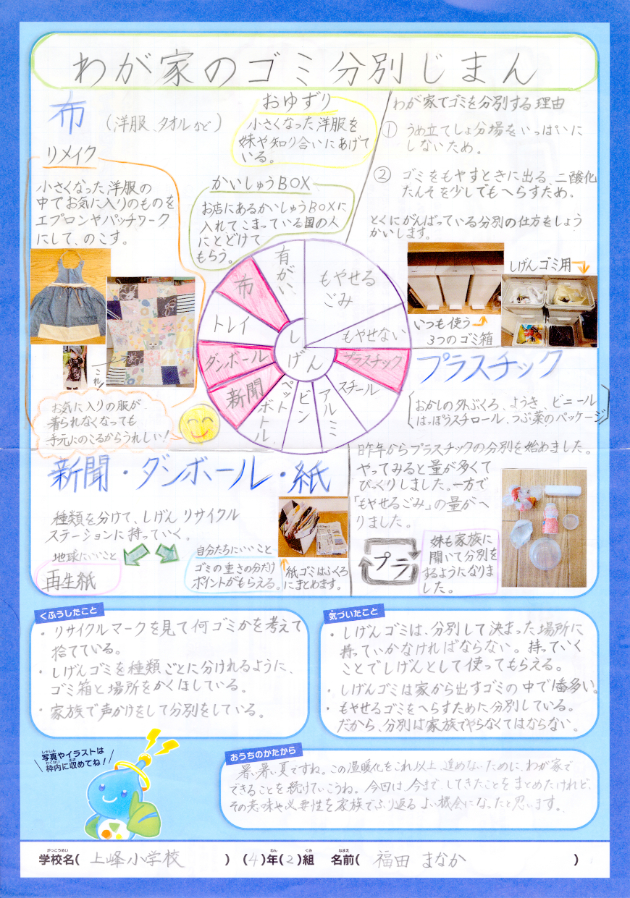 わが家のゴミ分別じまん
布
(洋服、タオルなど)
リメイク
小さくなった洋服の
中でお気に入りのものを
エプロンやパッチワーク
にして、のこす。
お気に入りの服が、
着られなくなっても
手元にのこるからうれしい!
おゆずり
小さくなった洋服を
妹や知り合いにあげて
いる。
かいしゅうBOX
お店にあるかいしゅうBOXに
入れてこまっている国の人
にとどけて
もらう。
わが家でゴミを分別する理由
① うめ立てしょ分場をいっぱいに
しないため。
② ゴミをもやすときに出る、二酸化
たんそを少しでもへらすため。
とくにがんばっている分別の仕方をしょう
かいします。
しげんゴミ用
いつも使う
3つのゴミ箱
もやせる
ごみ
もやせない
プラスチック
スチール
アルミ
ビン
ペットボトル
新聞
ダンボール
トレイ
布
有がい
しげん
プラスチック
(おかしの外ぶくろ、ようき、ビニール
はっぽうスチロール、つぶ薬のパッケージ)
昨年からプラスチックの分別を始めました。
やってみると量が多くて
びっくりしました。一方で
「もやせるごみ」の量がへ
りました。
プラ
妹も家族に
聞いて分別を
するようになりま
した。
新聞・ダンボール・紙
種類を分けて、しげんリサイクル
ステーションに持っていく。
地球にいいこと
再生紙
自分たちにいいこと
ゴミの重さの分だけ
ポイントがもらえる。
紙ゴミはふくろ
にまとめます。
くふうしたこと
・リサイクルマークを見て何ゴミかを考えて
捨てている。
・しげんゴミを種類ごとに分けれるように、
ゴミ箱と場所をかくほしている。
・家族で声かけをして分別をしている。
気づいたこと
・しげんゴミは、分別して決まった場所に
持っていかなければならない。持っていく
ことでしげんとして使ってもらえる。
・しげんゴミは家から出すゴミの中で1番多い。
・もやせるゴミをへらすために分別している。
だから、分別は家族でやらなくてはならない。
写真やイラストは
枠内に収めてね!
おうちのかたから
暑い暑い夏ですね。この温暖化をこれ以上進めないために、わが家で
できることを続けていこうね。今回は、今までしてきたことをまとめたけれど、
その意味や必要性を家族でふり返るよい機会になったと思います。
学校名(上峰小学校) (4)年(2)組 名前(福田 まなか)